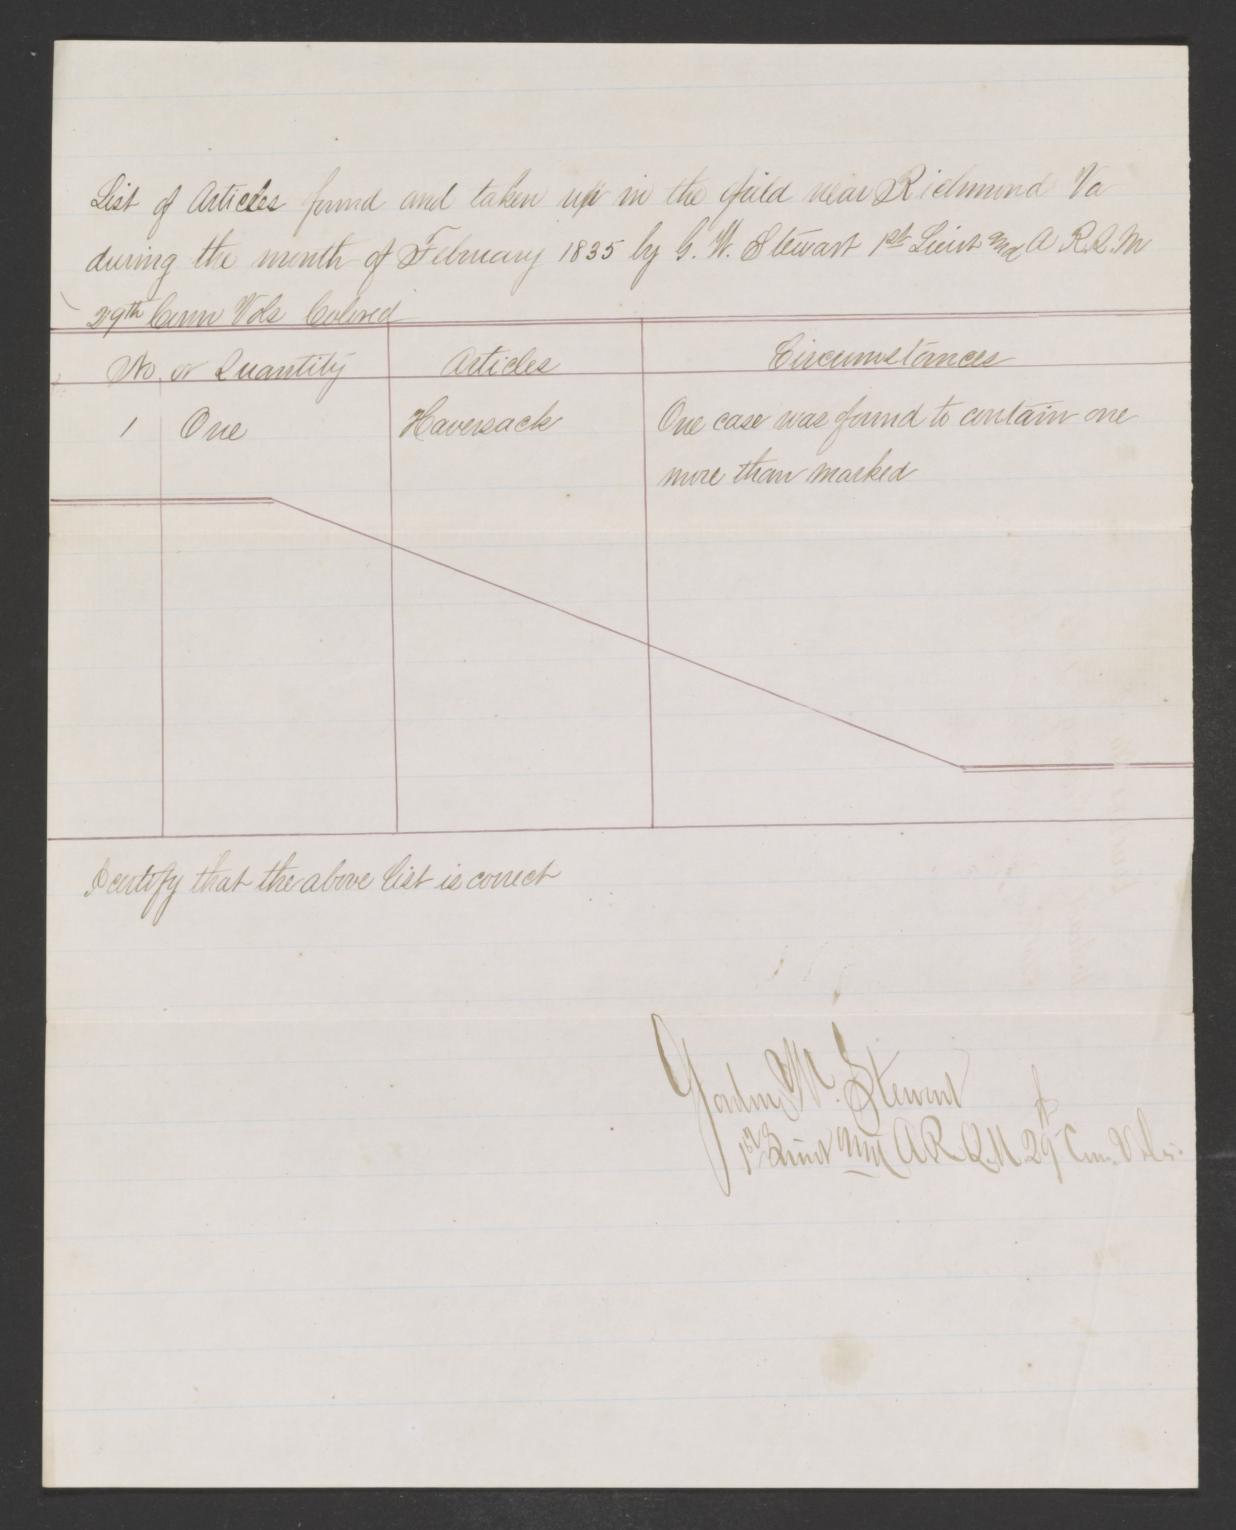 List of Articles found and taken up in the field near Richmond Va
during the month of February 1835 by G. W. Stewart 1st Lieut and A R.Q.M
29th Conn Vols Colored
No. or Quantity Articles Circumstances
1 One Haversack One case was found to contain one
more than marked
I certify that the above list is correct
W. Stewart
1st Lieut and A R Q.M 29th Conn. Vols.